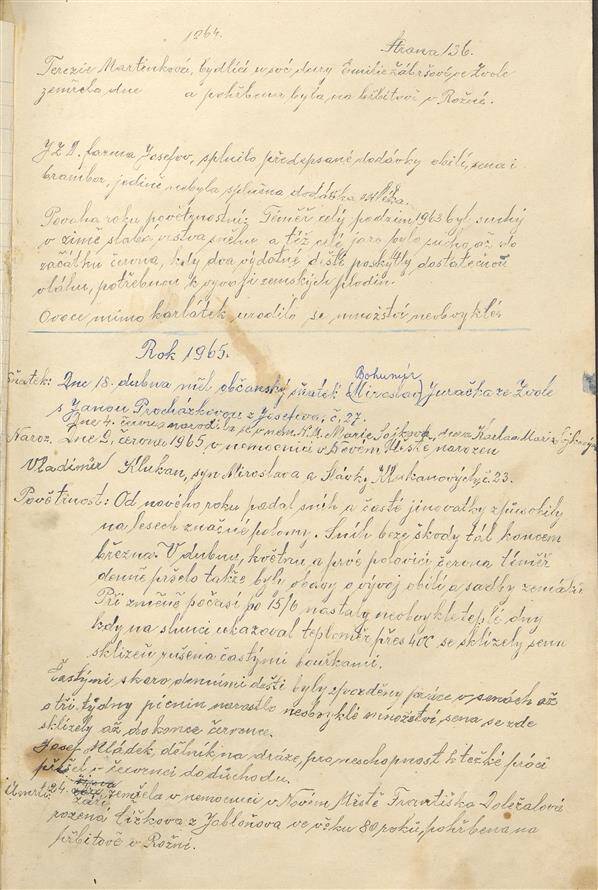 1964.
Strana 136.
Terezie Martinková, bydlící u své dcery Emilie Zábršové, ve Zvole
zemřela dne a pohřbena byla na hřbitově v Rožné.
J.Z.D. farma Josefov, splnilo předepsané dodávky obilí, sena i
brambor, jedině nebyla splněna dodávka mléka.
Povaha roku povětrnostní: Téměř celý podzim 1963 byl suchý
v zimě slabá vrstva sněhu a též celé jaro bylo sucho, až do
začátku června, kdy dva vydatné deště poskytly dostatečnou
vláhu, potřebnou k vývoji zemských plodin.
Ovoce mimo karlátek urodilo se množství neobvyklé
Rok 1965.
Bohumír
Sňatek: Dne 18. dubna měl občanský sňatek (Miroslav) Juračka ze Zvole
s Janou Procházkovou z Josefova, č. 27.
Dne 4. června narodila se v nem. N.M. Marie Sojková, dcera Karla a Marie Sojkových
Naroz. Dne 9. června 1965 v nemocnici v Novém Městě narozen
Vladimír Klukan, syn Miroslava a Slávky Klukanových č. 23.
Povětrnost: Od nového roku padal sníh a časté jinovatky způsobily
na lesech značné polomy. Sníh beze škody tál koncem
března. V dubnu, květnu a prvé polovici června téměř
denně pršelo takže byly obavy o vývoj obilí a sadby zemáků
Při změně počasí po 15/6 nastaly neobvykle teplé dny
kdy na slunci ukazoval teploměr přes 40C se sklízely sena
sklizeň rušena častými bouřkami.
Častými skoro denními dešti byly zpozděny práce v senách až
o tři týdny pícnin narostlo neobvyklé množství sena se zde
sklízely až do konce července.
Josef Mládek, dělník na dráze, pro neschopnost k těžké práci
přešel v červenci do důchodu.
Úmrtí: 24. září zemřela v nemocnici v Novém Městě Františka Doležalová
rozená Čížkova z Jabloňova ve věku 80 roků, pohřbena na
hřbitově v Rožní.